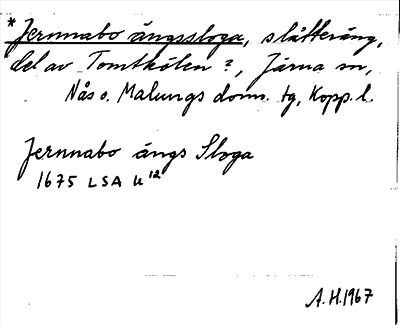 *Jernnabo ängssloga, slåtteräng,
del av Tomtkölen?, Järna sn,
Nås o. Malungs doms. tg, Kopp. l.
Jernnabo ängs Sloga
1675 LSA U 12
A.H. 1967